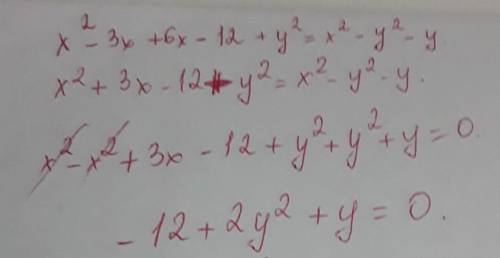 x² - 3x + 6x - 12 + y² = x² - y² - y
x² + 3x - 12 + y² = x² - y² - y.
x² - x² + 3x - 12 + y² + y² + y = 0.
- 12 + 2y² + y = 0.